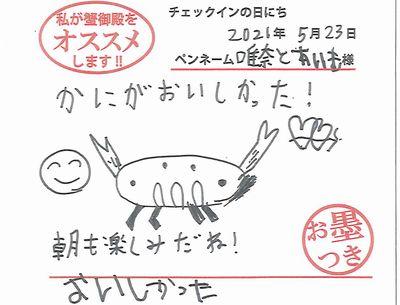 私が蟹御殿を
オススメ
します!!
チェックインの日にち
2021年 5月23日
ペンネーム唯奈とあいむ様
かにがおいしかった!
朝も楽しみだね!
おいしかった
お墨
つき